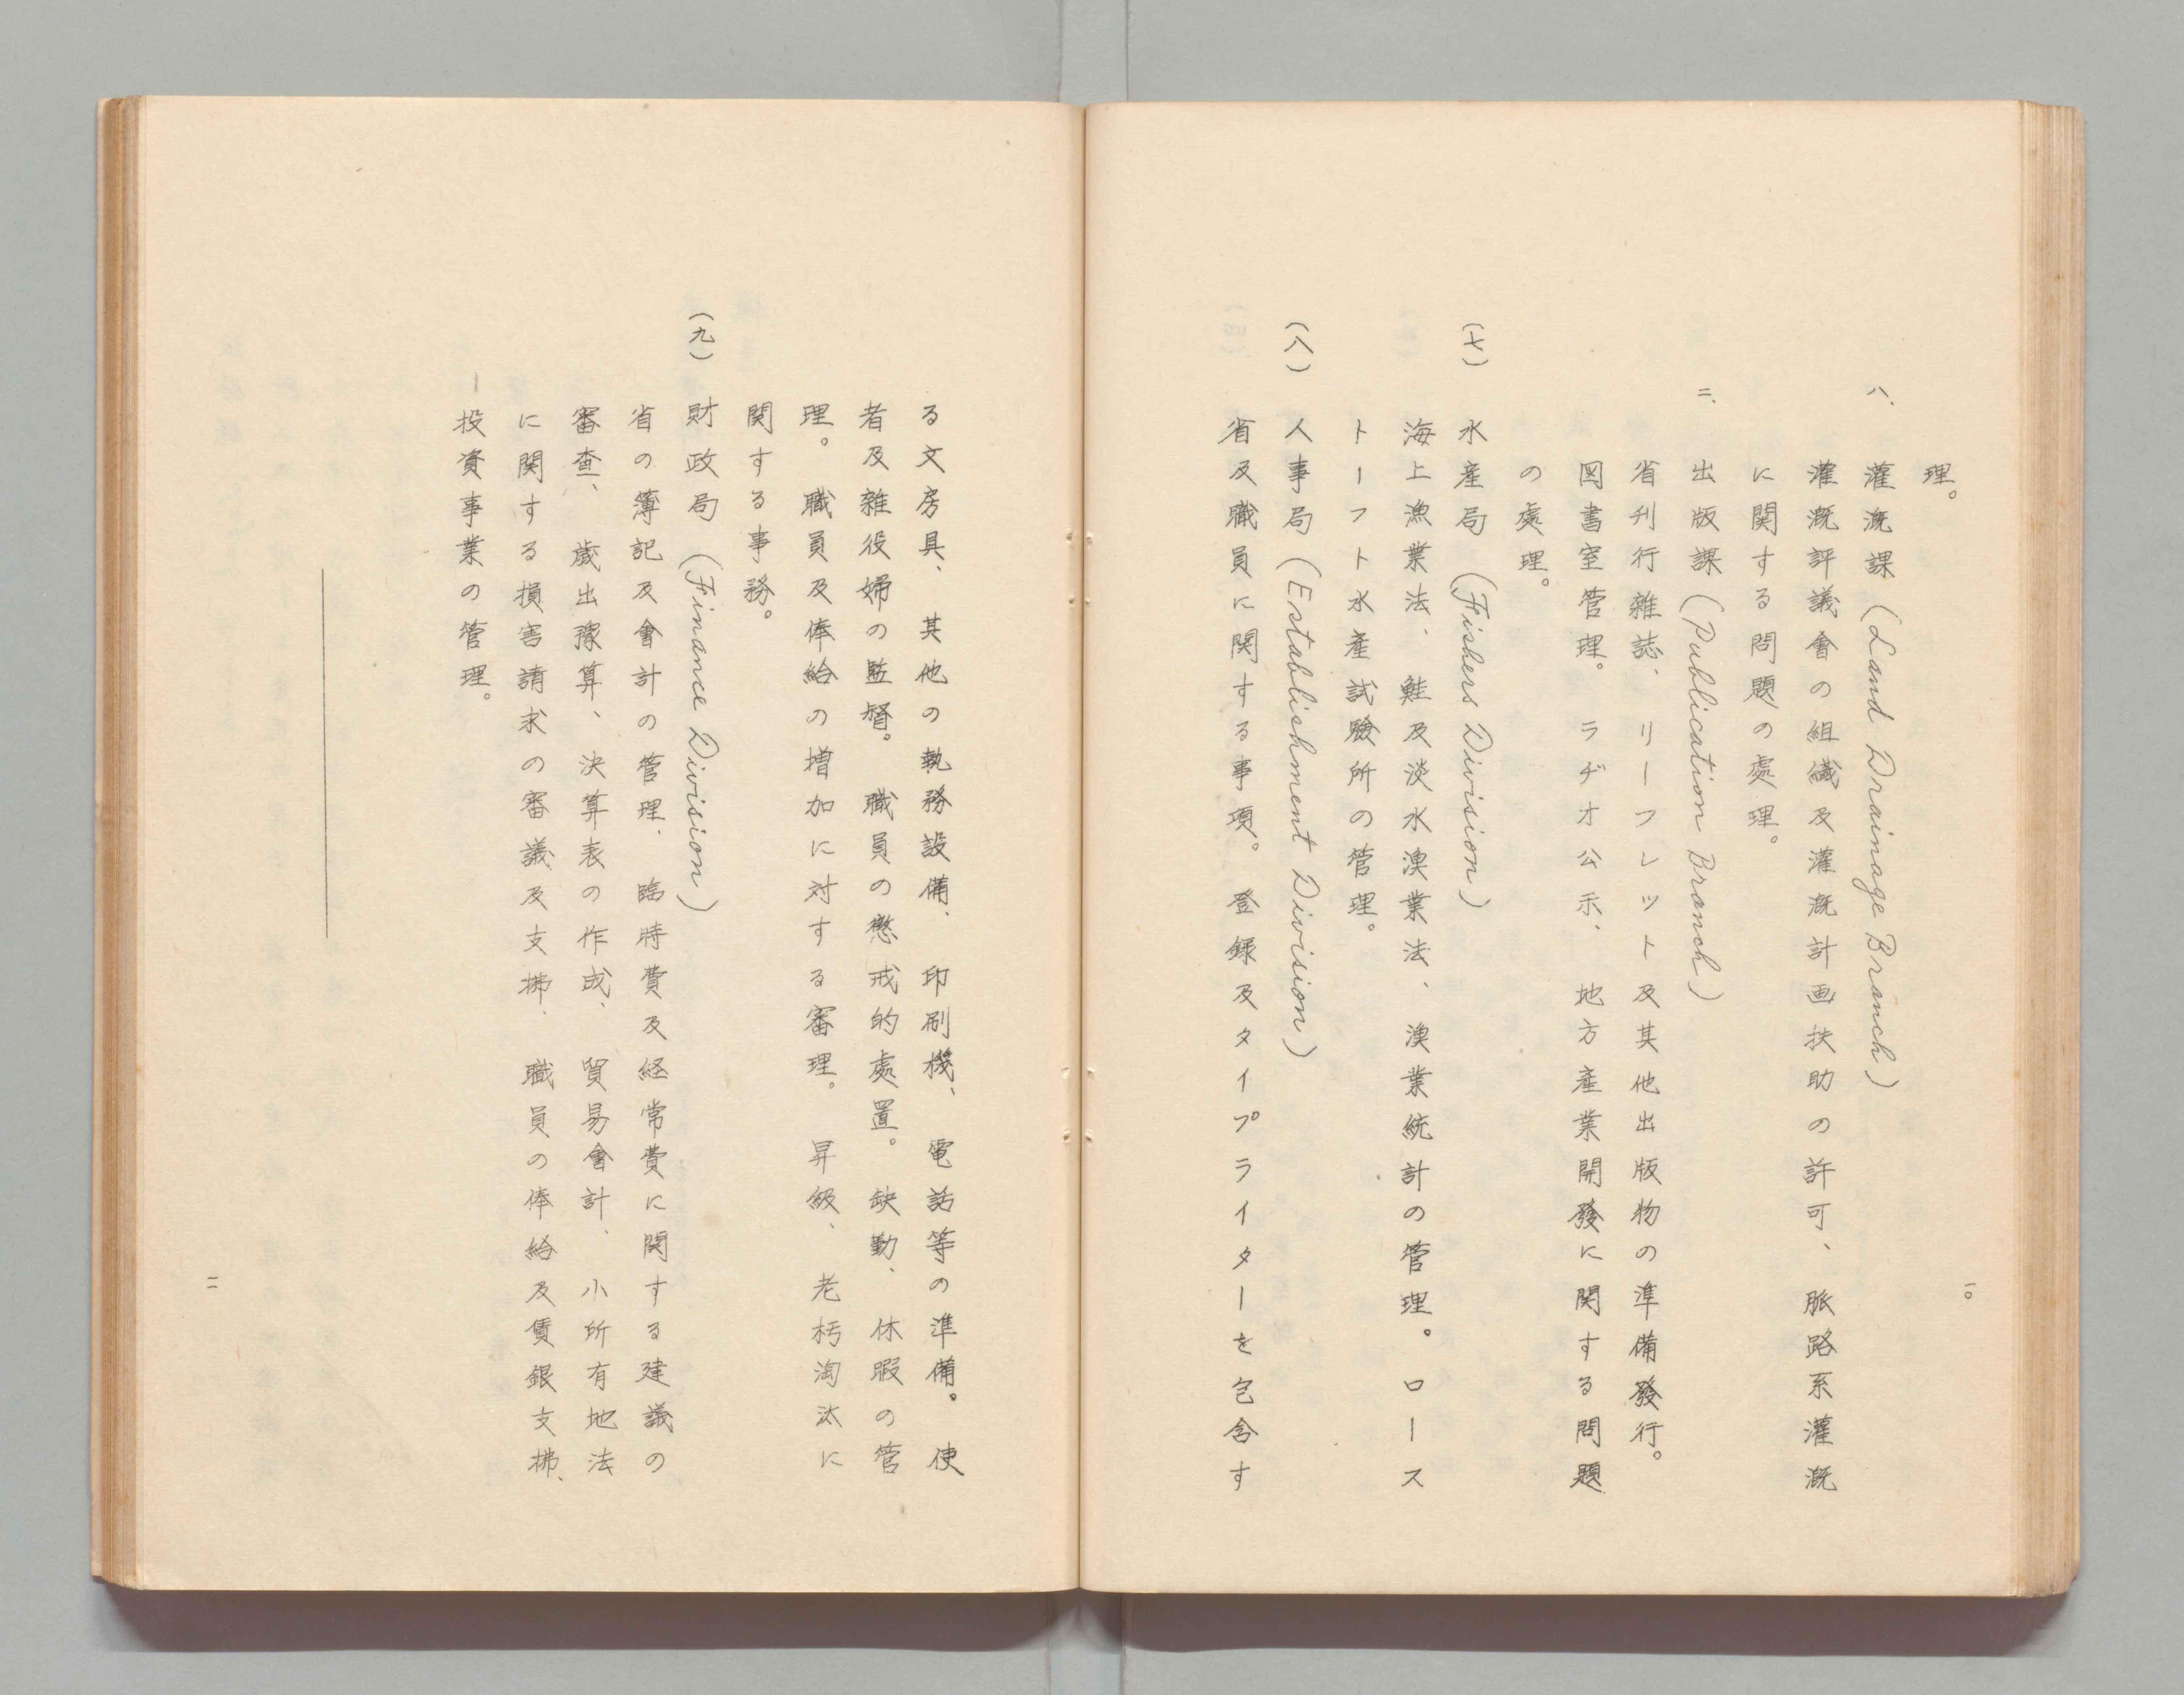 理。
ハ、灌漑課 (Land Drainage Branch)
灌漑評議會の組織及灌漑計画扶助の許可、脈路系灌漑
に関する問題の處理。
ニ、出版課 (Publication Branch)
省刊行雑誌、リーフレット及其他出版物の準備發行。
図書室管理。ラヂオ公示、地方産業開發に関する問題
の處理。
(七) 水産局 (Fishers Division)
海上漁業法、鮭及淡水漁業法、漁業統計の管理。ロース
トーフト水産試驗所の管理。
(八) 人事局 (Establishment Division)
省及職員に関する事項。登録及タイプライターを包含す
一〇
る文房具、其他の執務設備、印刷機、電話等の準備。使
者及雑役婦の監督。職員の懲戒的處置。缺勤、休暇の管
理。職員及俸給の増加に対する審理。昇級、老朽淘汰に
関する事務。
(九) 財政局 (Finance Division)
省の簿記及會計の管理、臨時費及経常費に関する建議の
審査、歳出豫算、決算表の作成、貿易會計、小所有地法
に関する損害請求の審議及支拂、職員の俸給及賃銀支拂、
投資事業の管理。
一一